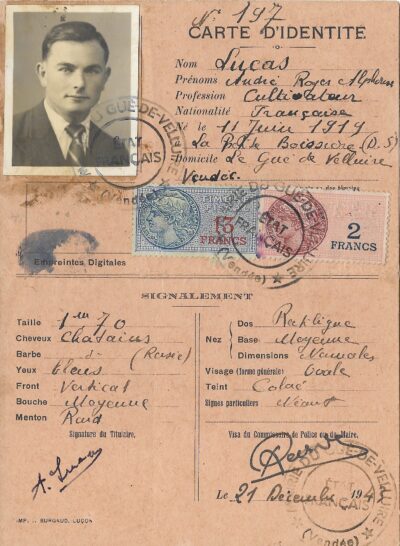 N° 197
CARTE D'IDENTITÉ
Nom Lucas
Prénoms André Roger Alphonse
Profession Cultivateur
Nationalité Française
Né le 11 Juin 1919
La Boissière (D.S)
Domicile Le Gué de Velluire
Vendée.
MAIRIE DU GUÉ-DE-VELLUIRE
ÉTAT FRANÇAIS
(Vendée)
13 FRANCS
2 FRANCS
MAIRIE DU GUÉ-DE-VELLUIRE
ÉTAT FRANÇAIS
(Vendée)
Empreintes Digitales
SIGNALEMENT
Taille 1m 70
Cheveux Chatains
Barbe do (Rasée)
Yeux bleus
Front Vertical
Bouche Moyenne
Menton Rond
Signature du Titulaire.
A. Lucas
Nez
Dos Rectiligne
Base Moyenne
Dimensions Normales
Visage (forme générale) Ovale
Teint Coloré
Signes particuliers Néant
Visa du Commissaire de Police ou du Maire.
Le 21 Décembre 194
MAIRIE DU GUÉ-DE-VELLUIRE
ÉTAT FRANÇAIS
(Vendée)
IMP. J. BURGAUD, LUÇON